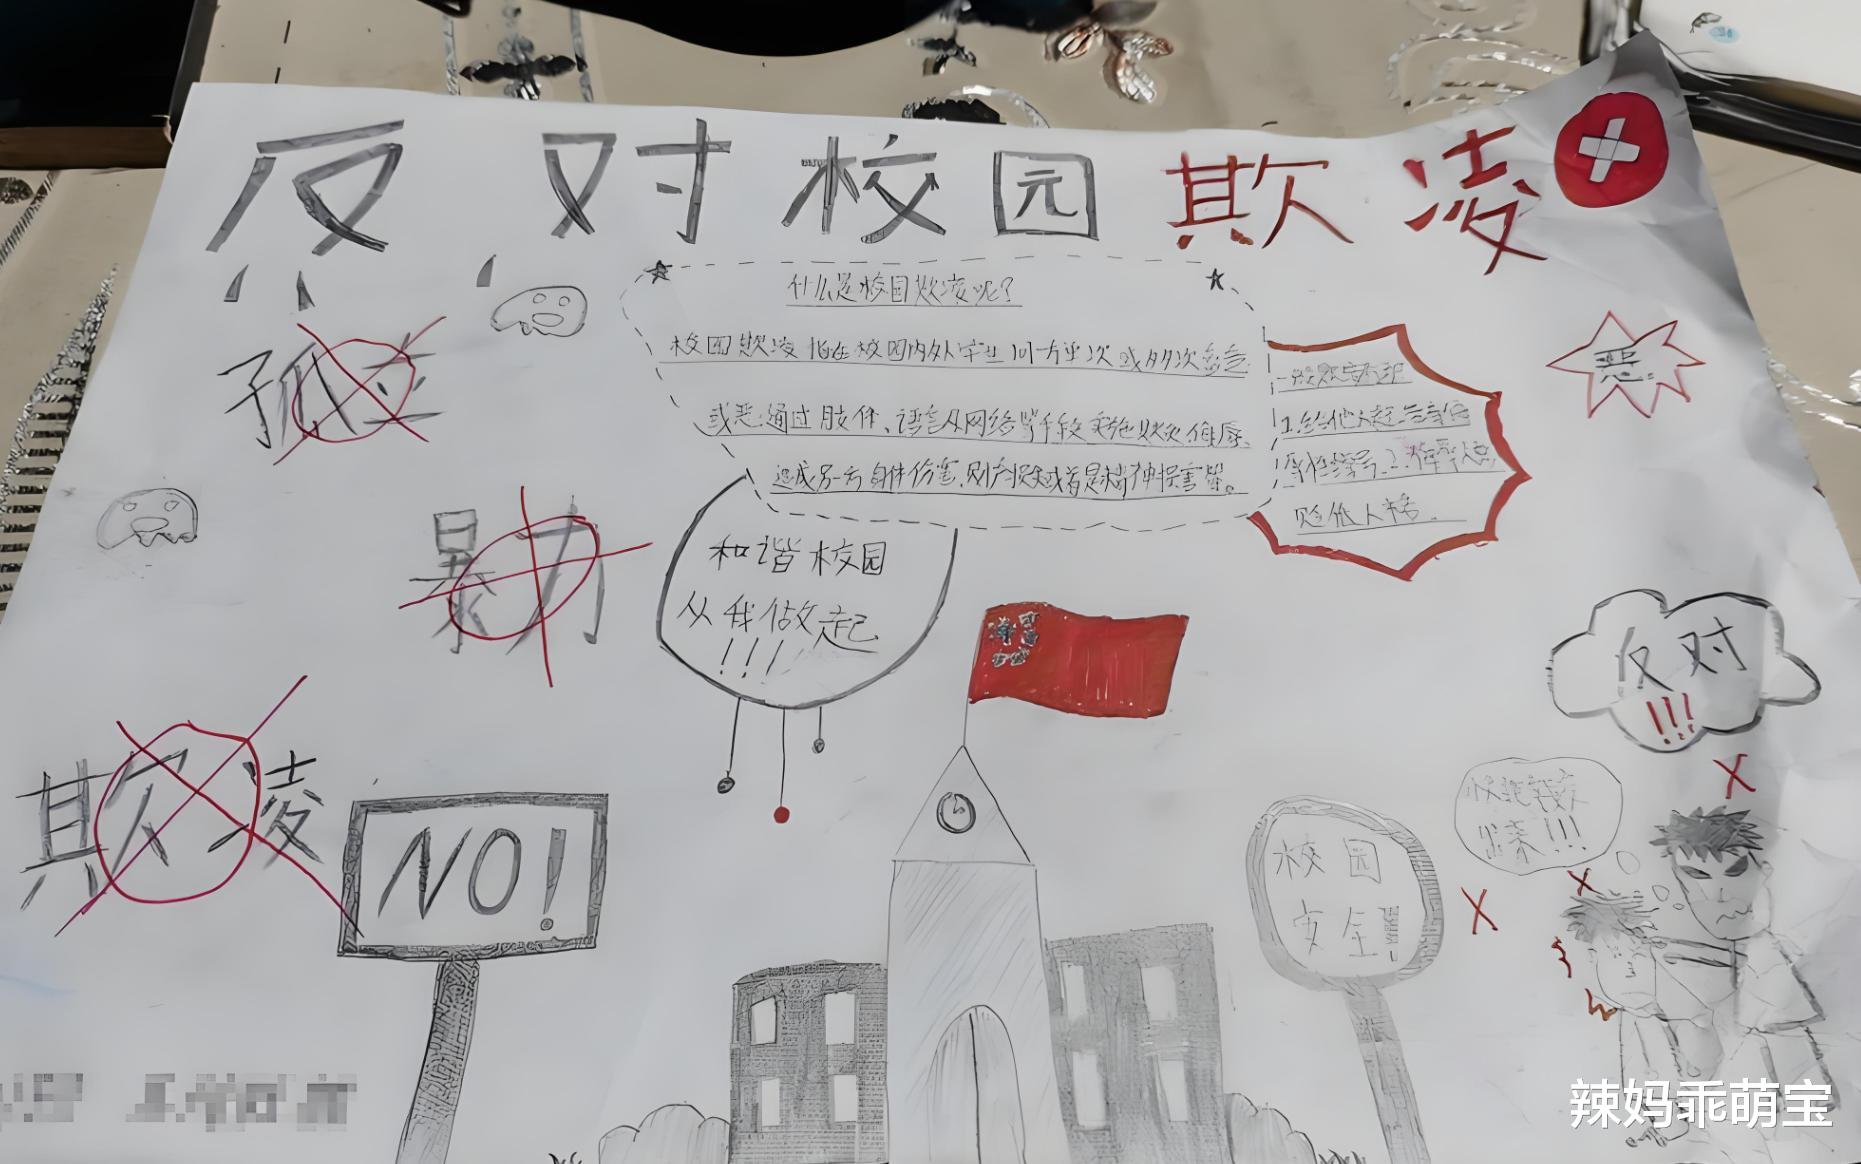 反对校园欺凌
什么是校园欺凌呢?
校园欺凌指在校园内外学生间一方单次或多次蓄意
或恶通过肢体、语言及网络等手段实施欺负侮辱
造成另一方身体伤害、财产损失或者是精神损害等。
1.给他人起
号.2.
贬低人格.
恶.
孤立
暴力
和谐校园
从我做起
!!!
反对
!!!
欺凌
NO!
校园
安全!
快把钱交
出来!!!
辣妈乖萌宝